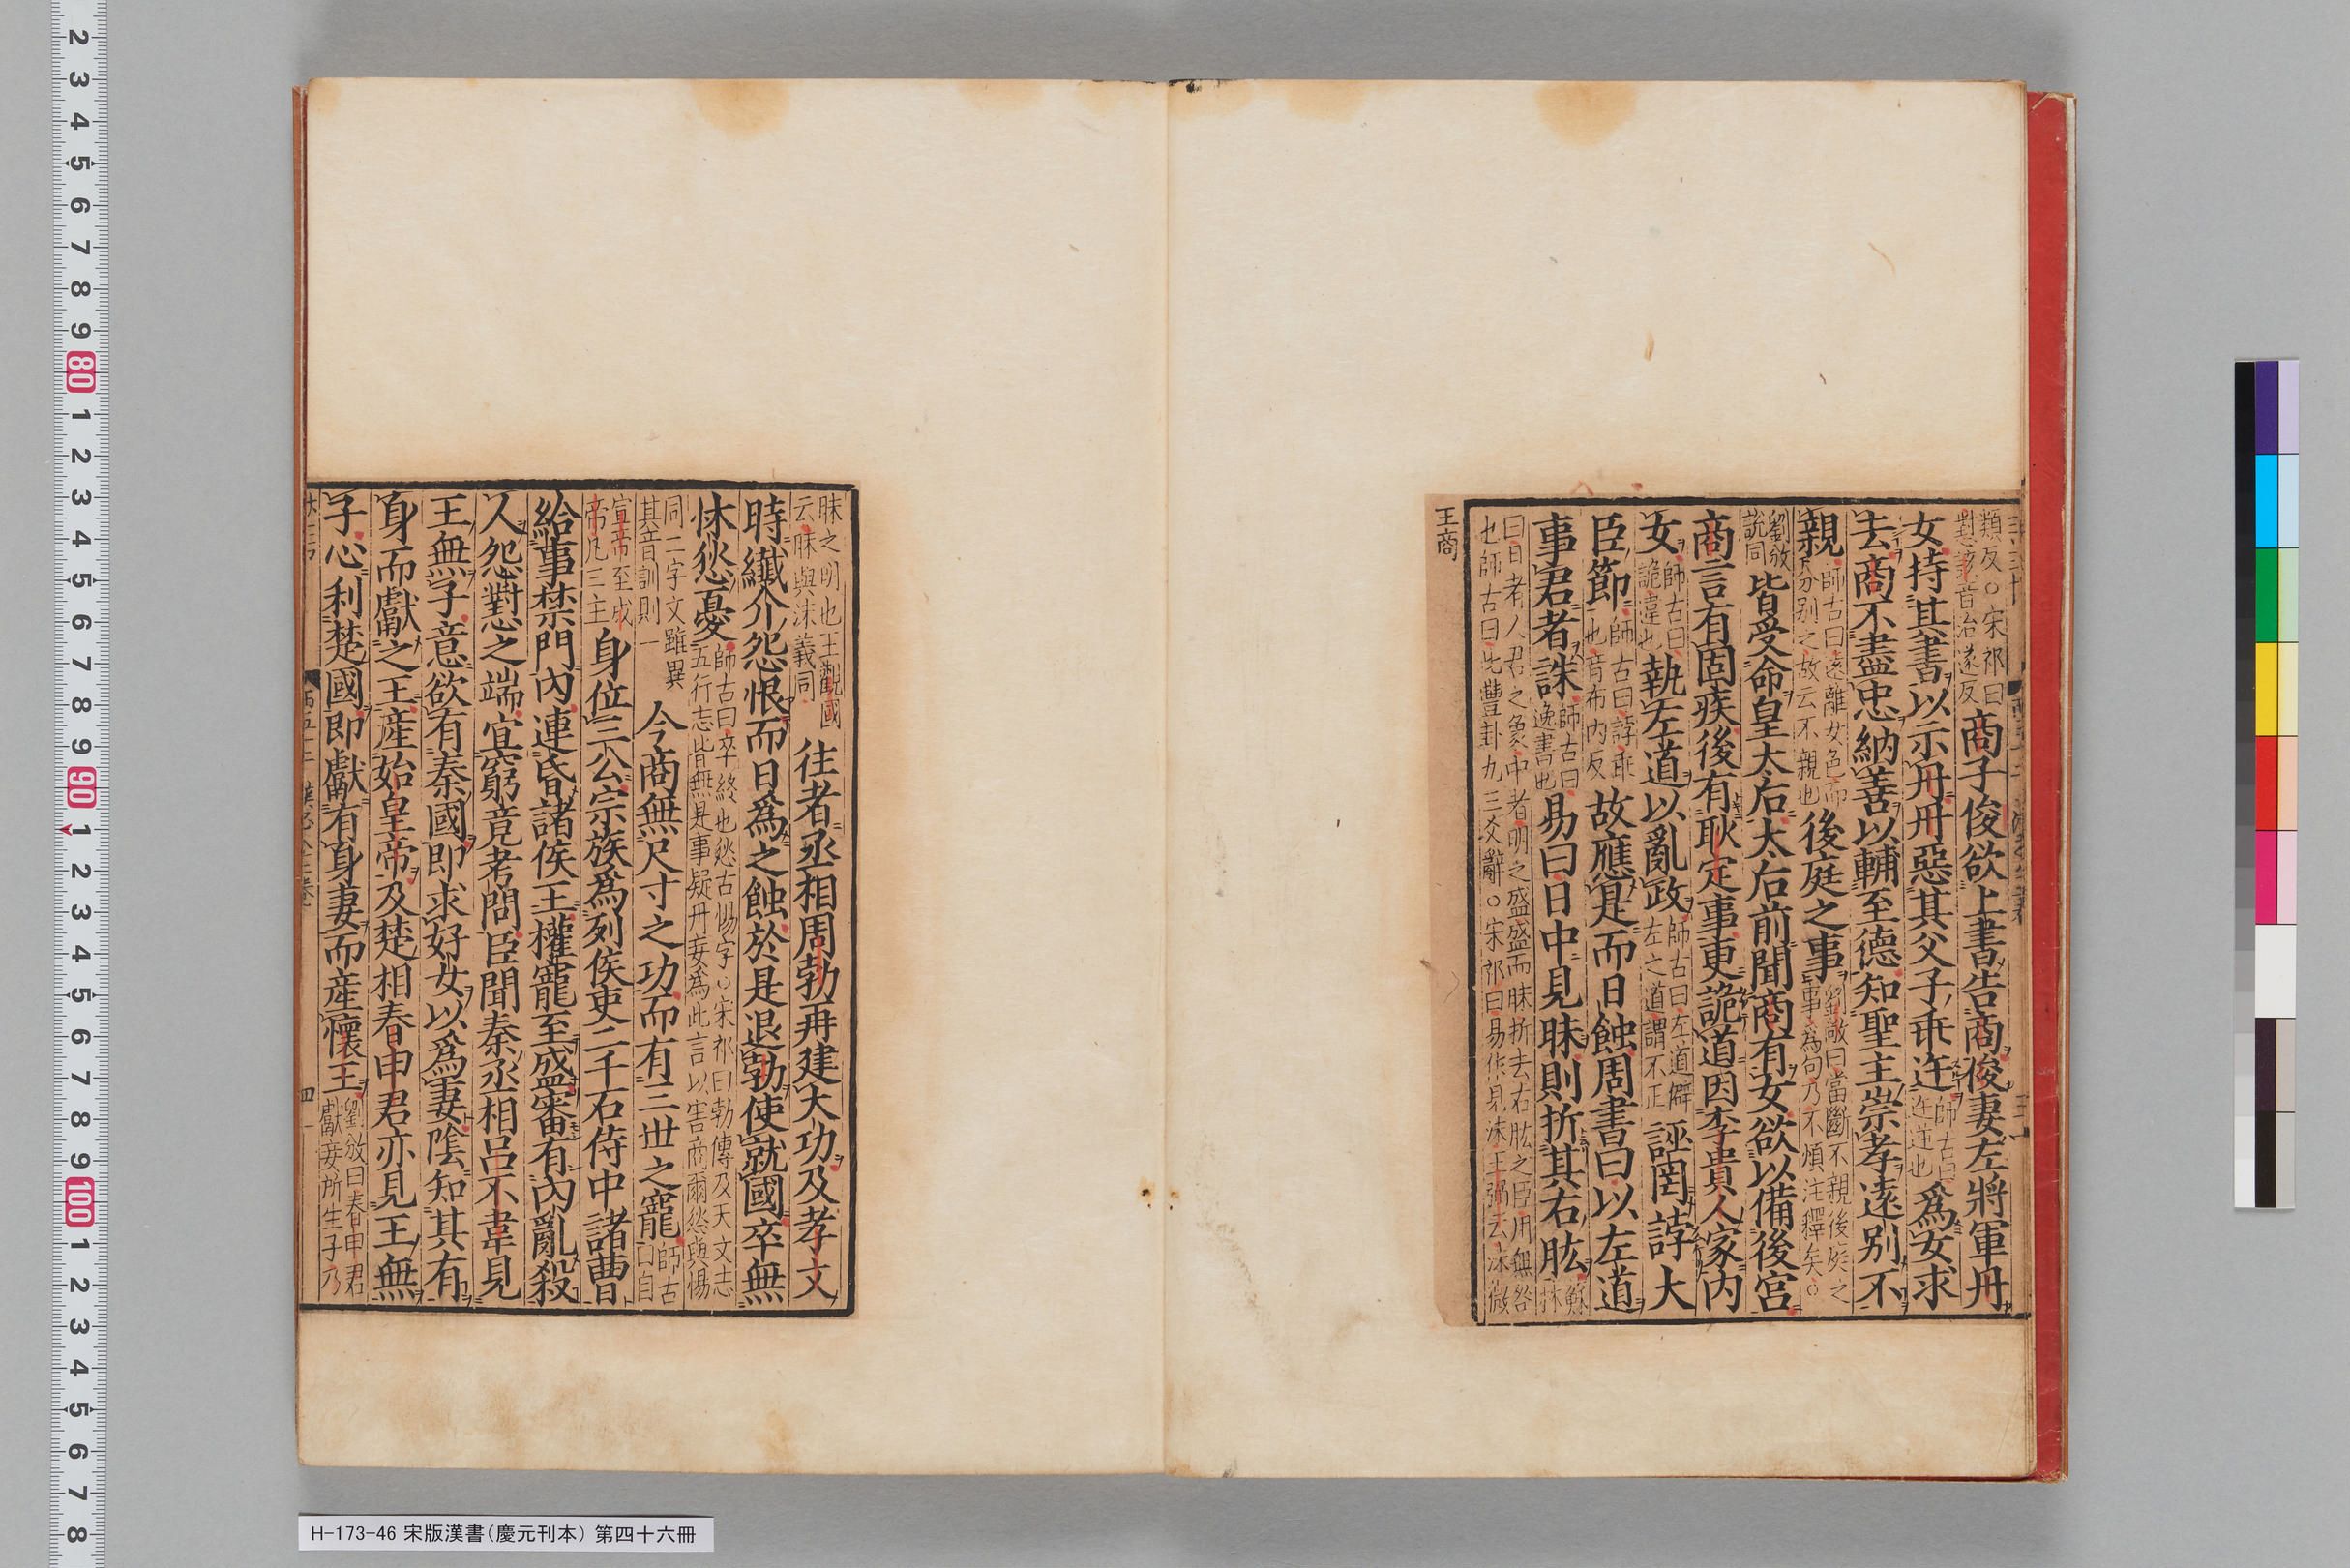 類反○宋祁曰
懟音治遂反
商子俊欲上書告商俊妻左將軍丹
女持其書以示丹丹惡其父子乖迕
師古曰
迕逆也
爲女求
去商不盡忠納善以輔至德知聖主崇孝遠別不
親
師古曰遠離女色而
分別之故云不親也
後庭之事
劉敞曰當斷不親後庭之
事爲句乃不煩注釋矣○
劉攽
說同
皆受命皇太后太后前聞商有女欲以備後宮
商言有固疾後有耿定事更詭道因李貴人家內
女
師古曰
詭違也
執左道以亂政
師古曰左道僻
左之道謂不正
誣罔誖大
臣節
師古曰誖乖
也音布內反
故應是而日蝕周書曰以左道
事君者誅
師古曰
逸書也
易曰日中見昧則折其右肱
蘇林
曰日者人君之象中者明之盛盛而昧折去右肱之臣用無咎
也師古曰此豐卦九三爻辭○宋祁曰易作見沬王弼云沬微
王商
昧之明也王觀國
云昧與沬義同
往者丞相周勃再建大功及孝文
時纖介怨恨而日爲之蝕於是退勃使就國卒無
怵愁憂
師古曰卒終也愁古惕字○宋祁曰勃傳及天文志
五行志皆無是事疑丹妄爲此言以害商爾愁與惕
同二字文雖異
其音訓則一
今商無尺寸之功而有三世之寵
師古
曰自
宣帝至成
帝凡三主
身位三公宗族爲列侯吏二千石侍中諸曹
給事禁門內連昏諸侯王權寵至盛審有內亂殺
人怨懟之端宜窮竟考問臣聞秦丞相呂不韋見
王無子意欲有秦國即求好女以爲妻陰知其有
身而獻之王產始皇帝及楚相春申君亦見王無
子心利楚國即獻有身妻而產懷王
劉攽曰春申君
獻妾所生子乃
四
H-173-46 宋版漢書(慶元刊本) 第四十六冊